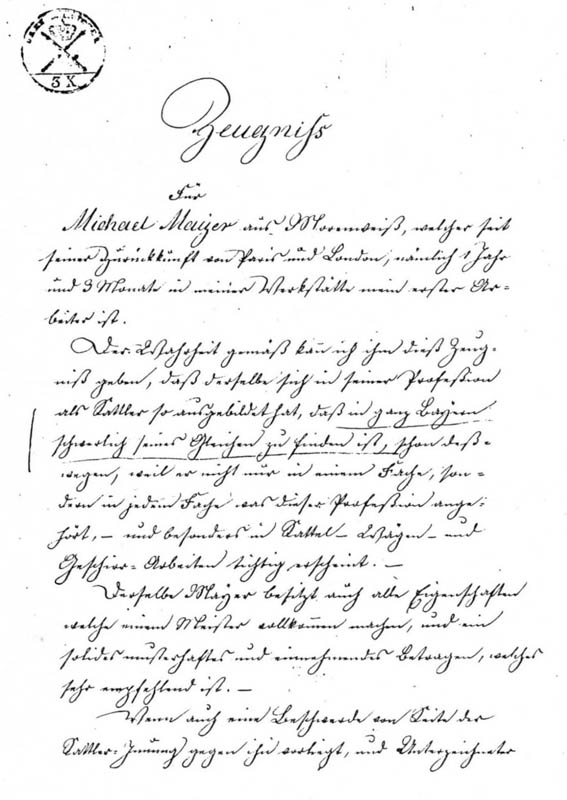 3 X
Zeugniss
Für
Michael Mayer aus Morenweiß, welcher seit
seiner Zurückkunft von Paris und London, nämlich 1 Jahr
und 3 Monate in meiner Werkstätte mein erster Ar-
beiter ist.
Der Wahrheit gemäß kan̄ ich ihm dieß Zeug-
niß geben, daß derselbe sich in seiner Profeßion
als Sattler so ausgebildet hat, daß in ganz Bayern
schwerlich seines Gleichen zu finden ist, schon deß-
wegen, weil er nicht nur in einem Fache, son-
dern in jedem Fache was dieser Profeßion ange-
hört, – und besonders in Sattel- Wägen- und
Geschirr-Arbeiten tichtig erscheint. –
Derselbe Mayer besitzt auch alle Eigenschaften
welche einem Meister vollkom̄en machen, und ein
solides musterhaftes und einnehmendes Betragen, welches
sehr empfehlend ist. –
Wenn auch eine Beschwerde von Seite der
Sattler-In̄ung gegen ihn vorliegt, und Unterzeichneter